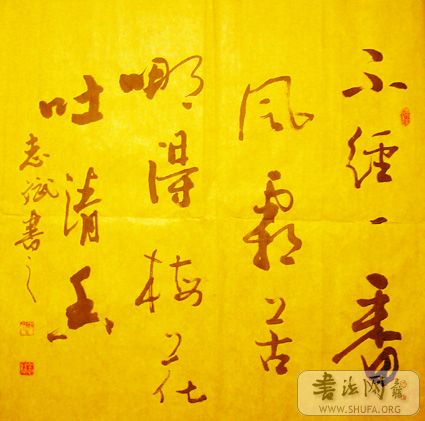 不經一番
風霜苦
哪得梅花
吐清香
志斌書之
書法网
WWW.SHUFA.ORG